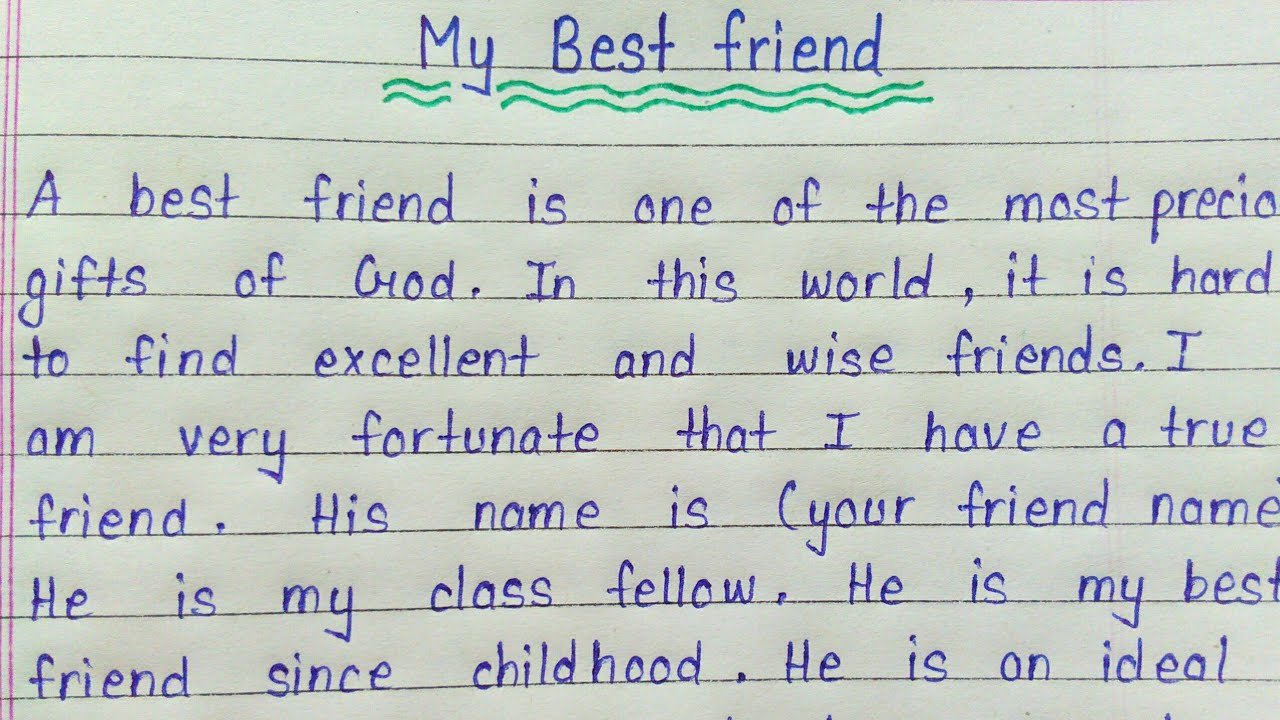 My Best friend
A best friend is one of the most precio
gifts of God. In this world, it is hard
to find excellent and wise friends. I
am very fortunate that I have a true
friend. His name is (your friend name
He is my class fellow. He is my best
friend since childhood. He is an ideal